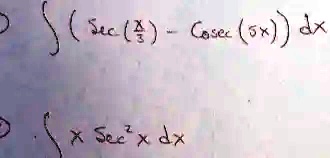 ) ∫ ( Sec (x/3) - Cosec (5x) ) dx
) ∫ x Sec² x dx